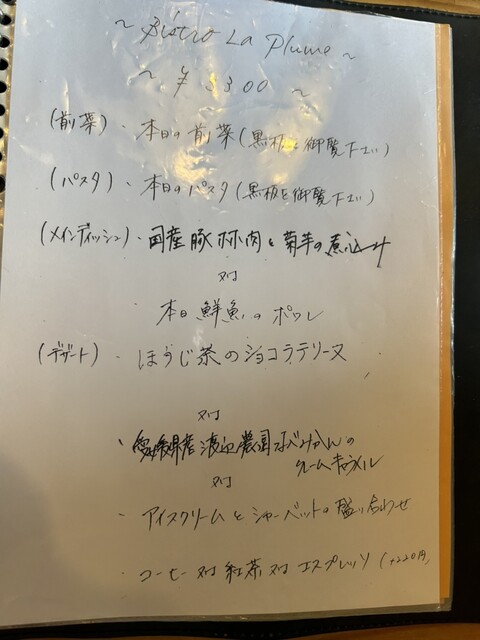 ~ Bistro La Plume ~
~ ¥ 3300 ~
(前菜)・本日の前菜(黒板を御覧下さい)
(パスタ)・本日のパスタ(黒板を御覧下さい)
(メインディッシュ)・国産豚ホホ肉と菊芋の煮込み
又は
本日鮮魚のポワレ
(デザート)・ほうじ茶のショコラテリーヌ
又は
・愛媛県産渡辺農園みかんの
クレームキャラメル
又は
・アイスクリームとシャーベットの盛り合わせ
・コーヒー又は紅茶又はエスプレッソ(+220円)